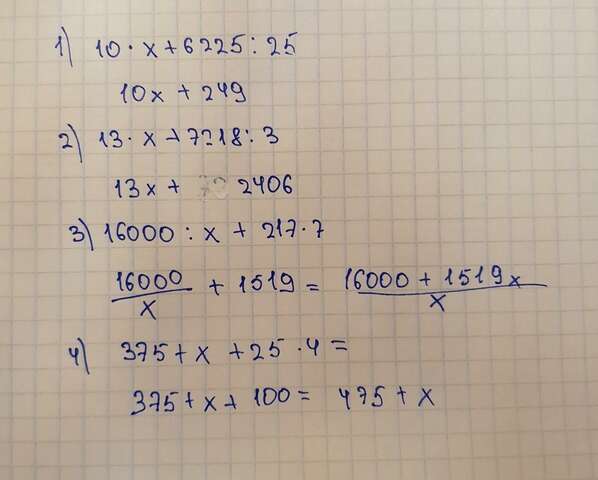 1) 10 · x + 6225 : 25
10x + 249
2) 13 · x + 7218 : 3
13x + 2406
3) 16000 : x + 217 · 7
16000/x + 1519 = (16000 + 1519x)/x
4) 375 + x + 25 · 4 =
375 + x + 100 = 475 + x